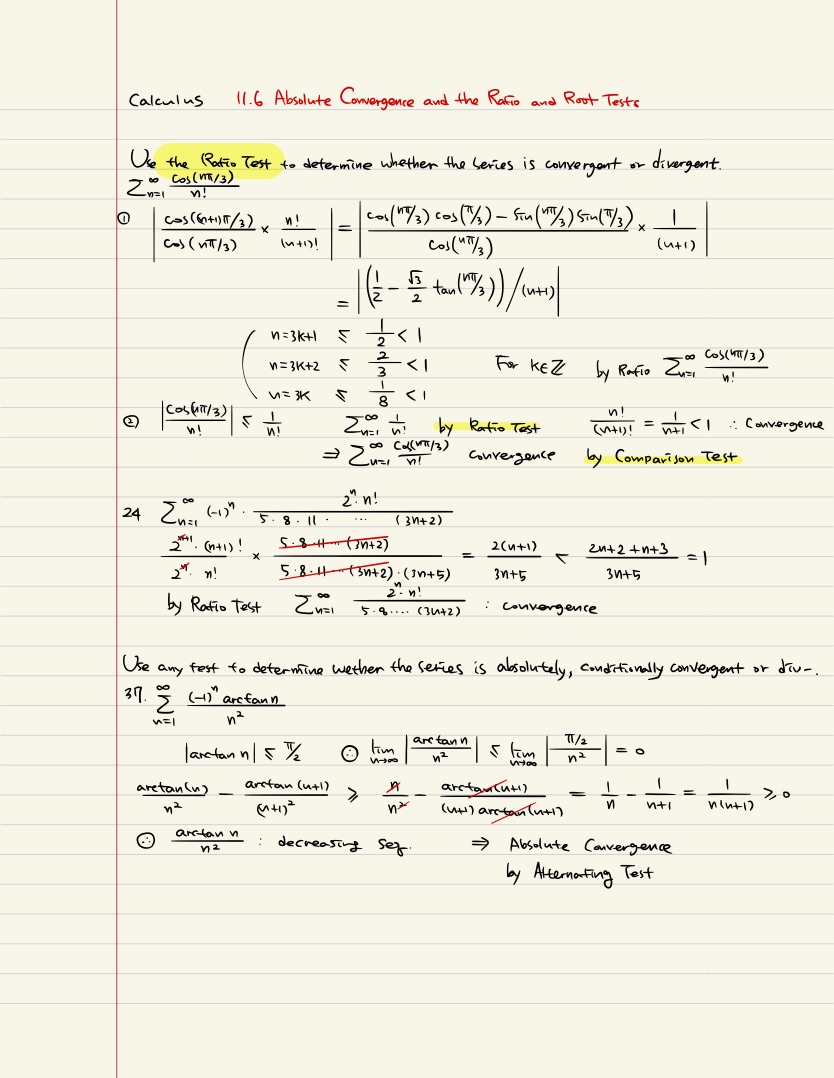 Calculus 11.6 Absolute Convergence and the Ratio and Root Tests
Use the Ratio Test to determine whether the series is convergent or divergent.
∑_{n=1}^∞ cos(nπ/3)/n!
① |cos((n+1)π/3)/cos(nπ/3) × n!/(n+1)!| = |(cos(nπ/3) cos(π/3) − sin(nπ/3) sin(π/3))/cos(nπ/3) × 1/(n+1)|
= |(1/2 − √3/2 tan(nπ/3))/(n+1)|
n=3k+1 ≤ 1/2 < 1
n=3k+2 ≤ 2/3 < 1 For k∈ℤ by Ratio ∑_{n=1}^∞ cos(nπ/3)/n!
n=3k ≤ 1/8 < 1
② |cos(nπ/3)/n!| ≤ 1/n! ∑_{n=1}^∞ 1/n! by Ratio Test n!/(n+1)! = 1/(n+1) < 1 ∴ Convergence
⇒ ∑_{n=1}^∞ cos(nπ/3)/n! convergence by Comparison Test
24 ∑_{n=1}^∞ (-1)^n · 2^n · n!/(5·8·11· ··· (3n+2))
2^{n+1}·(n+1)!/(2^n · n!) × 5·8·11···(3n+2)/(5·8·11···(3n+2)·(3n+5)) = 2(n+1)/(3n+5) < (2n+2+n+3)/(3n+5) = 1
by Ratio Test ∑_{n=1}^∞ 2^n·n!/(5·8···· (3n+2)) : convergence
Use any test to determine wether the series is absolutely, conditionally convergent or div-.
37. ∑_{n=1}^∞ (-1)^n arctan n/n²
|arctan n| ≤ π/2 ∴ lim_{n→∞} |arctan n/n²| ≤ lim_{n→∞} |(π/2)/n²| = 0
arctan(n)/n² − arctan(n+1)/(n+1)² ≥ n/n² − arctan(n+1)/((n+1) arctan(n+1)) = 1/n − 1/(n+1) = 1/(n(n+1)) ≥ 0
∴ arctan n/n² : decreasing seq. ⇒ Absolute Convergence
by Alternating Test